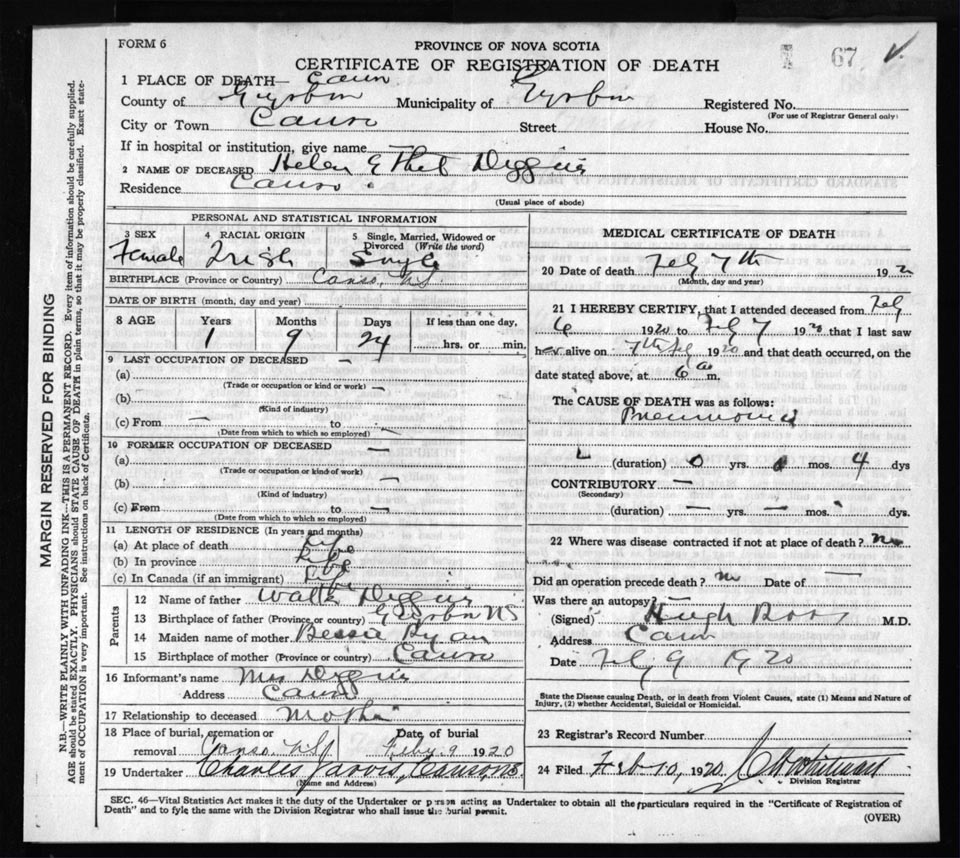 FORM 6
PROVINCE OF NOVA SCOTIA
67
CERTIFICATE OF REGISTRATION OF DEATH
1 PLACE OF DEATH—
County of Guysboro Municipality of Guysboro Registered No.
(For use of Registrar General only)
City or Town Canso Street House No.
If in hospital or institution, give name
2 NAME OF DECEASED Helen Ethel Diggins
Residence Canso
(Usual place of abode)
PERSONAL AND STATISTICAL INFORMATION
3 SEX 4 RACIAL ORIGIN 5 Single, Married, Widowed or Divorced (Write the word)
Female Irish Single
BIRTHPLACE (Province or Country) Canso, NS
DATE OF BIRTH (month, day and year)
8 AGE Years Months Days If less than one day,
1 9 24 hrs. or min.
9 LAST OCCUPATION OF DECEASED —
(a)
(Trade or occupation or kind or work) —
(b)
(Kind of industry)
(c) From — to —
(Date from which to which so employed)
10 FORMER OCCUPATION OF DECEASED —
(a)
(Trade or occupation or kind of work)
(b) —
(Kind of industry)
(c) From to —
(Date from which to which so employed)
11 LENGTH OF RESIDENCE (In years and months)
(a) At place of death Life
(b) In province Life
(c) In Canada (if an immigrant) Life
Parents
12 Name of father Walter Diggins
13 Birthplace of father (Province or country) Guysboro NS
14 Maiden name of mother Bessie Ryan
15 Birthplace of mother (Province or country) Canso
16 Informant's name Mrs Diggins
Address Canso
17 Relationship to deceased Mother
18 Place of burial, cremation or removal Canso, NS Date of burial Feby 9 1920
19 Undertaker Charles Jarvis, Canso, NS
(Name and Address)
MEDICAL CERTIFICATE OF DEATH
20 Date of death Feby 7th 192
(Month, day and year)
21 I HEREBY CERTIFY, that I attended deceased from Feby
6 1920 to Feby 7 1920 that I last saw
her alive on 7th Feby 1920 and that death occurred, on the
date stated above, at 6 a m.
The CAUSE OF DEATH was as follows:
Pneumonia
(duration) 0 yrs. 0 mos. 4 dys
CONTRIBUTORY —
(Secondary)
(duration) — yrs. — mos. dys.
22 Where was disease contracted if not at place of death? no
Did an operation precede death? no Date of —
Was there an autopsy?
(Signed) Hugh Ross M.D.
Address Canso
Date Feby 9 1920
State the Disease causing Death, or in death from Violent Causes, state (1) Means and Nature of
Injury, (2) whether Accidental, Suicidal or Homicidal.
23 Registrar's Record Number
24 Filed Feb 10, 1920
Division Registrar
SEC. 46—Vital Statistics Act makes it the duty of the Undertaker or person acting as Undertaker to obtain all the particulars required in the "Certificate of Registration of
Death" and to fyle the same with the Division Registrar who shall issue the burial permit.
(OVER)
MARGIN RESERVED FOR BINDING
N.B.—WRITE PLAINLY WITH UNFADING INK—THIS IS A PERMANENT RECORD. Every item of information should be carefully supplied.
AGE should be stated EXACTLY. PHYSICIANS should STATE CAUSE OF DEATH in plain terms, so that it may be properly classified. Exact statement of OCCUPATION is very important. See instructions on back of Certificate.